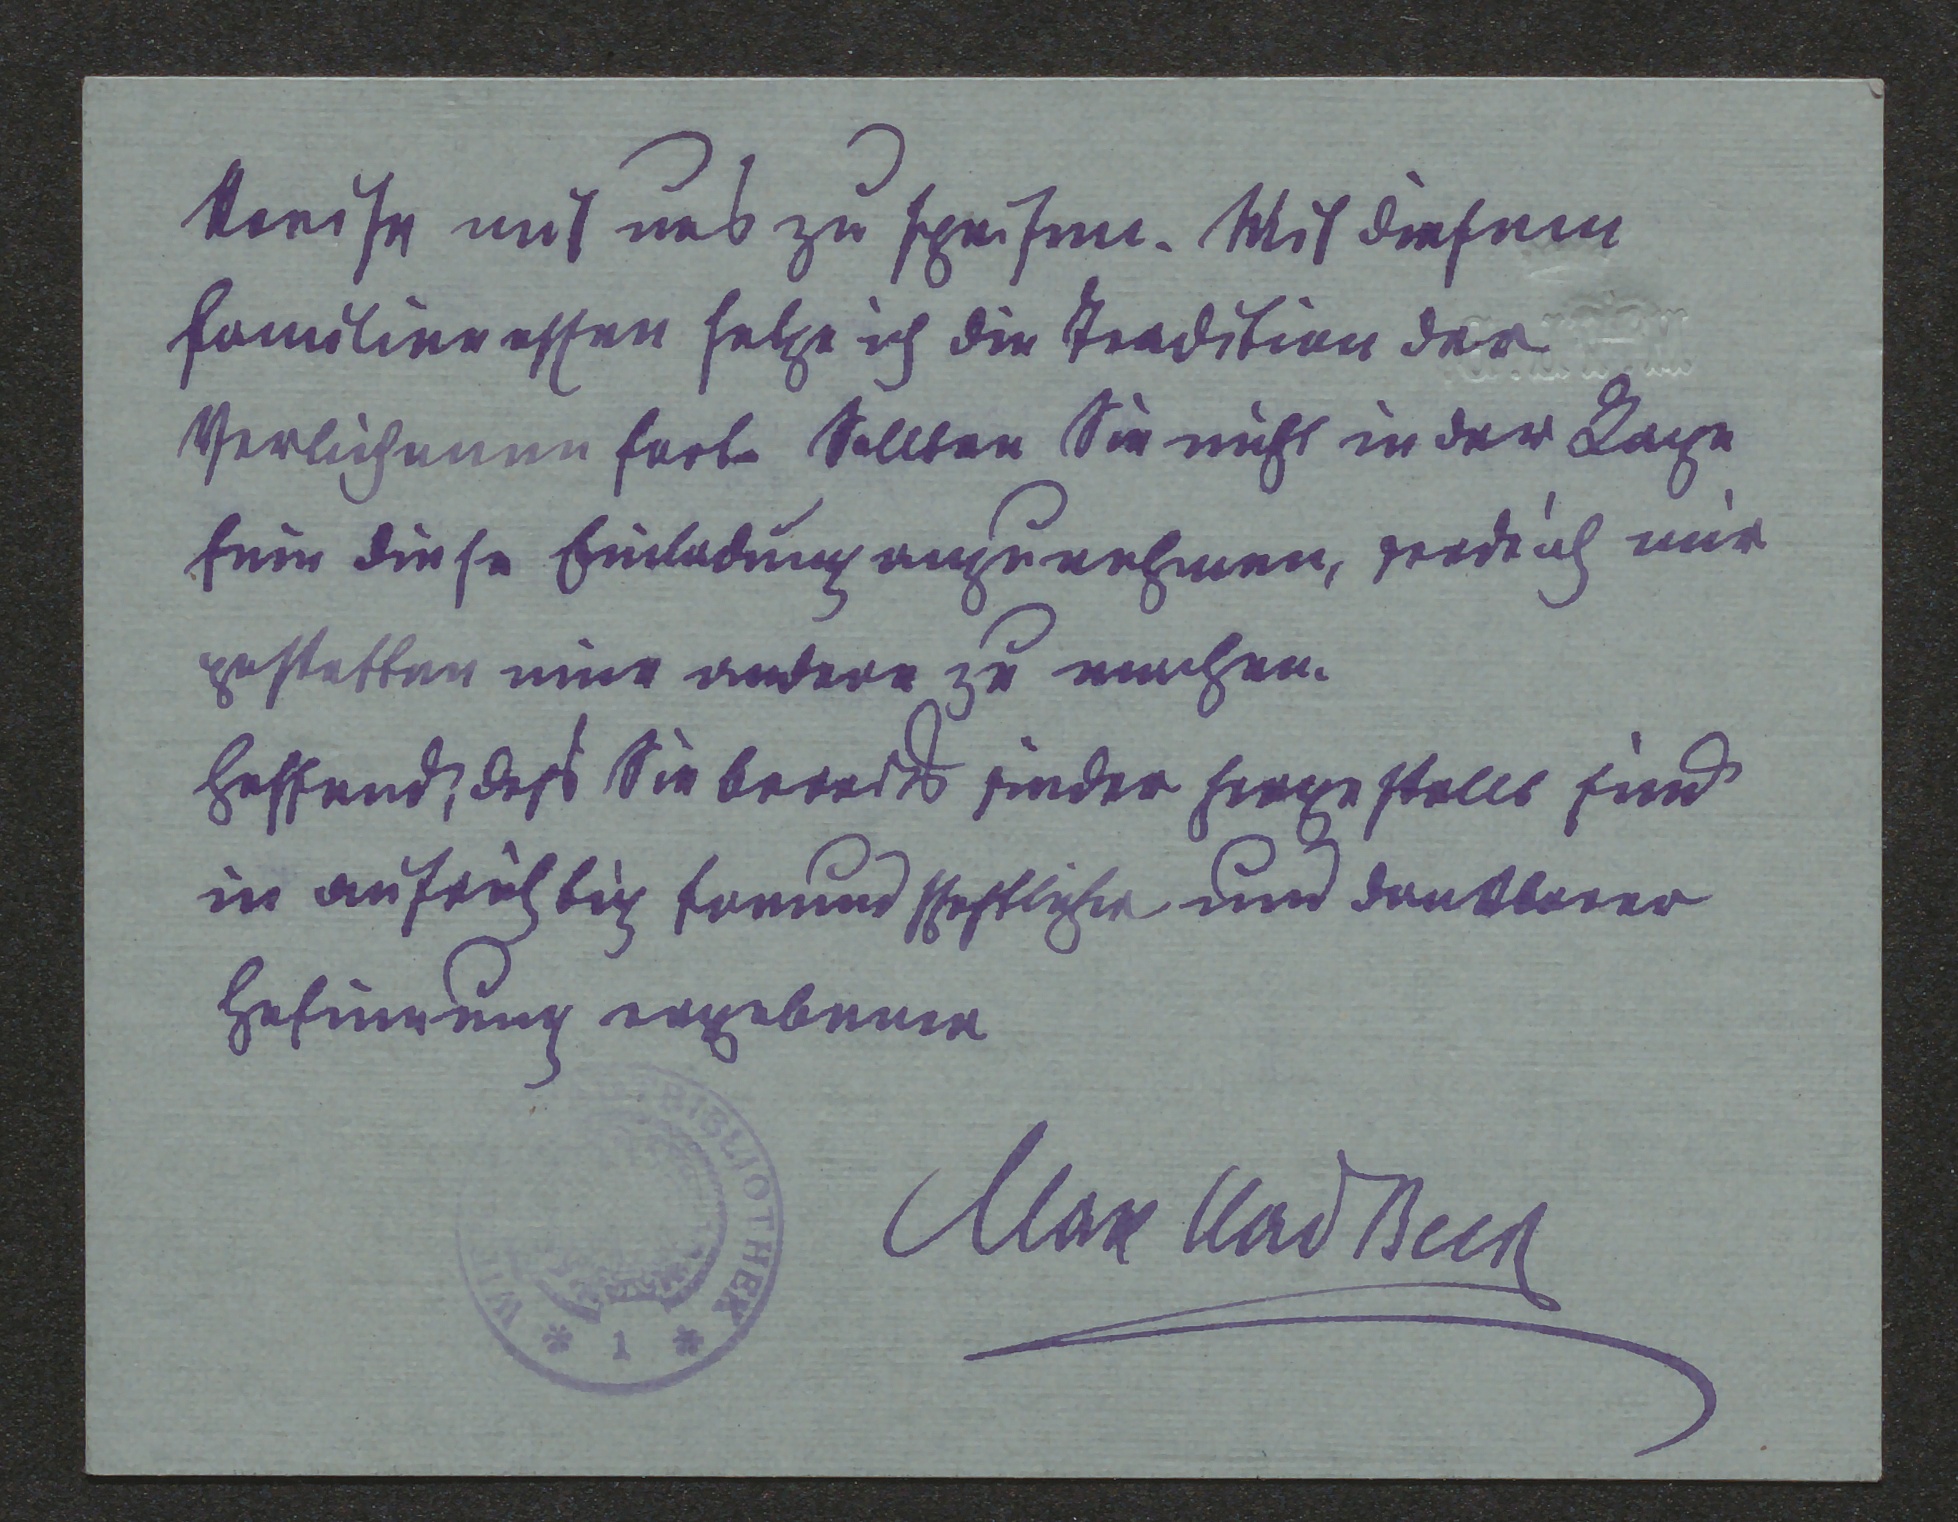 Kreise mit uns zu speisen. Mit diesem
Familienessen setze ich die Tradition der
Verlichenen fort. Sollten Sie nicht in der Lage
sein diese Einladung anzunehmen, werde ich mir
gestatten eine andere zu machen.
Hoffend, dass Sie bereits wieder hergestellt sind
in aufrichtig freundschaftlicher und dankbarer
Gesinnung ergebener
Max Vlad Beck
BIBLIOTHEK
* 1 *